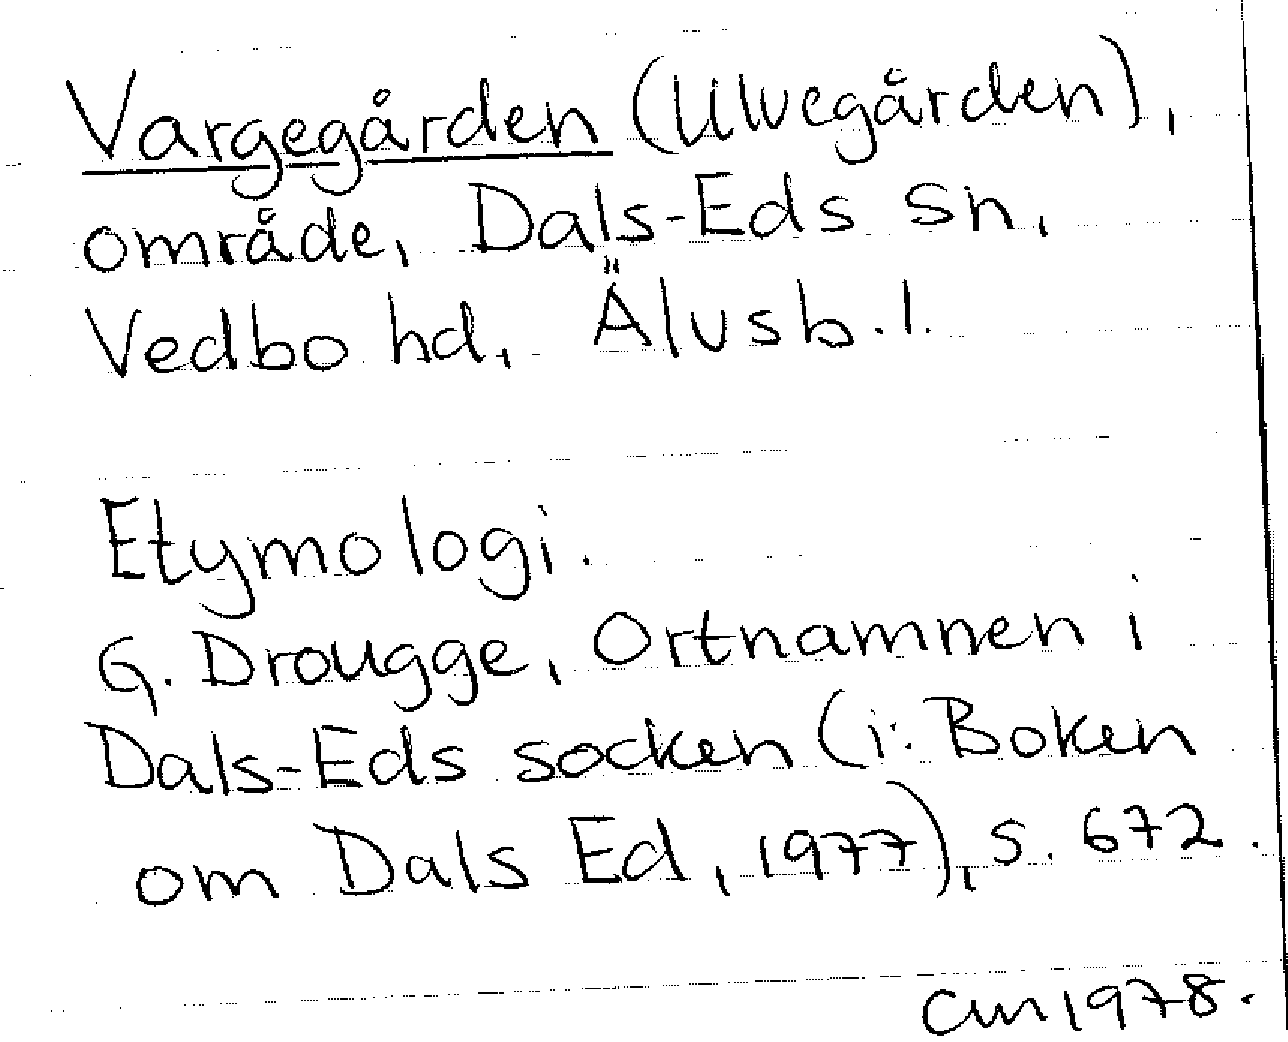 Vargegården (Ulvegården),
område, Dals-Eds sn,
Vedbo hd, Älvsb. l.
Etymologi.
G. Drougge, Ortnamnen i
Dals-Eds socken (i: Boken
om Dals Ed, 1977), s. 672.
CM 1978.